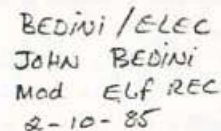 BEDINI/ELEC
JOHN BEDINI
Mod ELf REC
2-10-85